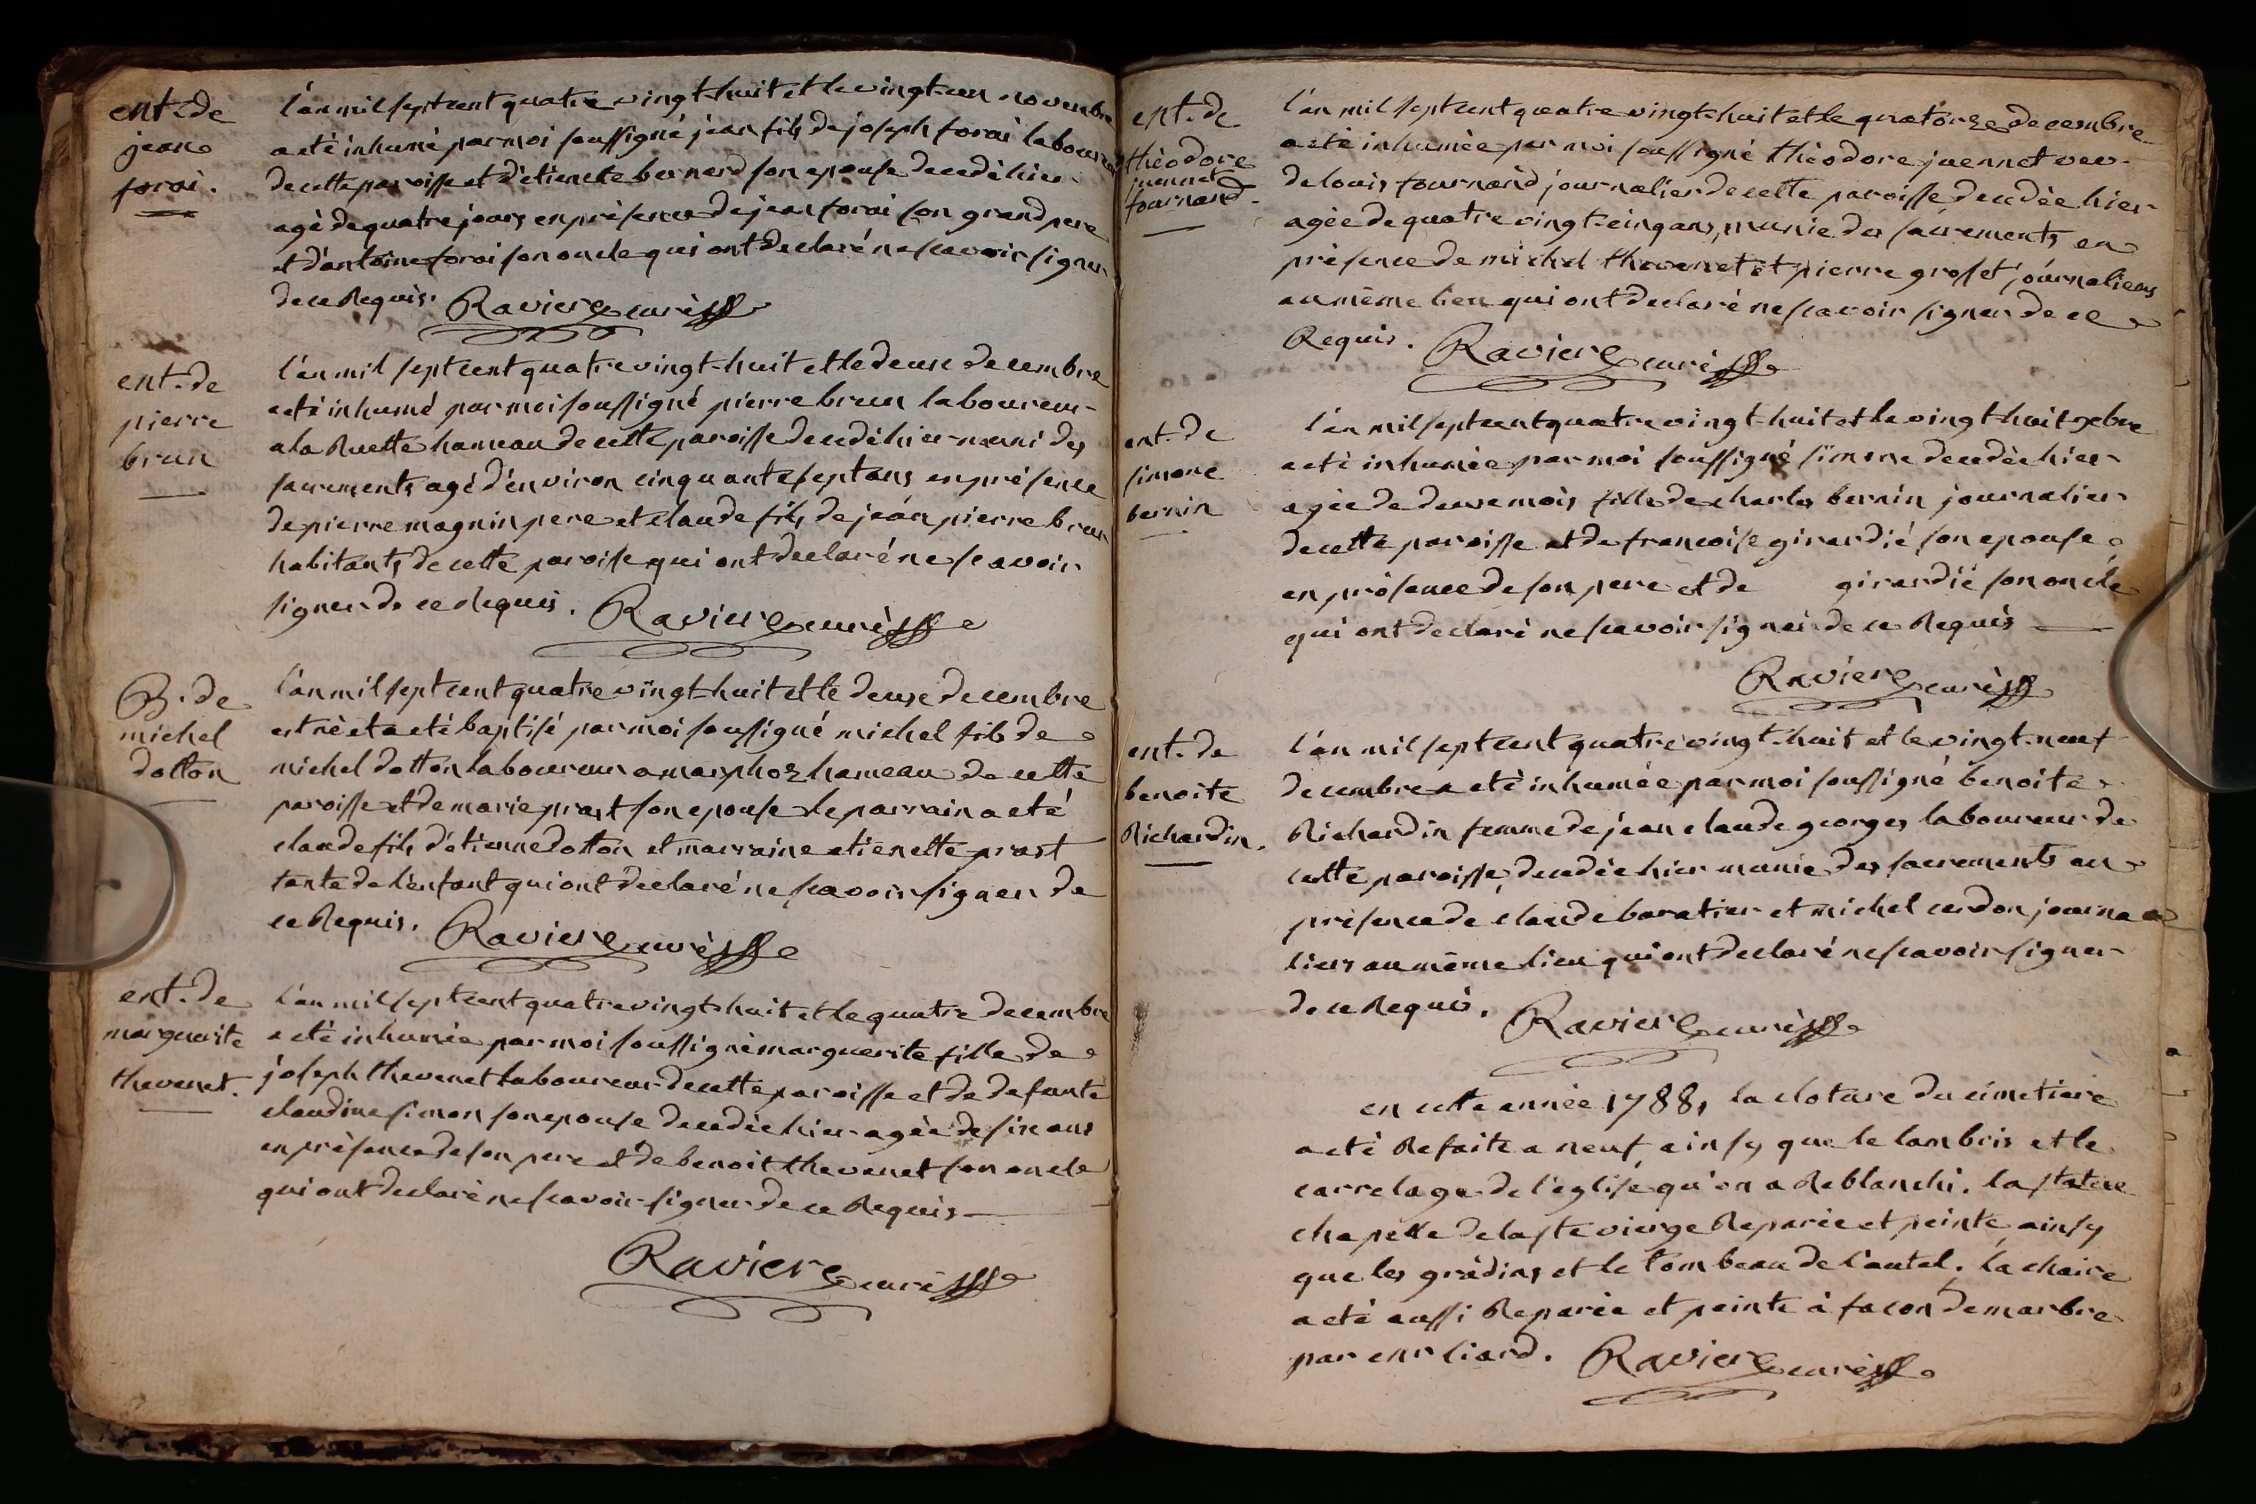 ent. de
jean
forai.
l'an mil sept cent quatre vingt-huit et le vingt-un novembre
a eté inhumé par moi soussigné jean fils de joseph forai laboureur
de cette paroisse et d'etienette bernard son epouse decedé hier
agé de quatre jours en présence de jean forai son grand pere
et d'antoine forai son oncle qui ont declaré ne scavoir signer
de ce Requis. Raviere curé
ent. de
pierre
brun
l'an mil sept cent quatre vingt-huit et le deux decembre
a eté inhumé par moi soussigné pierre brun laboureur
a la Ruette hameau de cette paroisse decedé hier muni des
sacrements agé d'environ cinquante sept ans en présence
de pierre magnin pere et claude fils de jean pierre brun
habitants de cette paroisse qui ont declaré ne scavoir
signer de ce Requis. Raviere curé
B. de
michel
dotton
l'an mil sept cent quatre vingt-huit et le deux decembre
est né et a eté baptisé par moi soussigné michel fils de
michel dotton laboureur a marphoz hameau de cette
paroisse et de marie prast son epouse le parrain a eté
claude fils d'étienne dotton et marraine etienette prast
tante de l'enfant qui ont declaré ne scavoir signer de
ce Requis. Raviere curé
ent. de
marguerite
thevenet.
l'an mil sept cent quatre vingt-huit et le quatre decembre
a eté inhumée par moi soussigné marguerite fille de
joseph thevenet laboureur de cette paroisse et de defunte
claudine simon son epouse decedée hier agée de six ans
en présence de son pere et de benoit thevenet son oncle
qui ont declaré ne scavoir signer de ce Requis
Raviere curé
ent. de
théodore
juennet
fournand
l'an mil sept cent quatre vingt-huit et le quatorze decembre
a eté inhumée par moi soussigné théodore juennet veu.
de louis fournand journalier de cette paroisse decedée hier
agée de quatre vingt-cinq ans, munie des sacrements en
présence de michel thevenet et pierre grosset journaliers
au même lieu qui ont declaré ne scavoir signer de ce
Requis. Raviere curé
ent. de
simone
bernin
l'an mil sept cent quatre vingt-huit et le vingt-huit xbre
a eté inhumée par moi soussigné simone decedée hier
agée de deux mois fille de charles bernin journalier
de cette paroisse et de francoise girardié son epouse
en présence de son pere et de girardié son oncle
qui ont declaré ne scavoir signer de ce Requis
Raviere curé
ent. de
benoite
Richardin.
l'an mil sept cent quatre vingt-huit et le vingt-neuf
decembre a eté inhumée par moi soussigné benoite
Richardin femme de jean claude georges laboureur de
cette paroisse, decedée hier munie des sacrements en
présence de claude baratier et michel cerdon journa
liers au même lieu qui ont declaré ne scavoir signer
de ce Requis. Raviere curé
en cette année 1788, la cloture du cimetiere
a eté Refaite a neuf ainsy que le lambris et le
carrelage de l'eglise qu'on a Reblanchi. la statue
chapelle de la ste vierge Reparée et peinte ainsy
que les grádins et le tombeau de l'autel. la chaire
a eté aussi Reparée et peinte à facon de marbre
par liard. Raviere curé